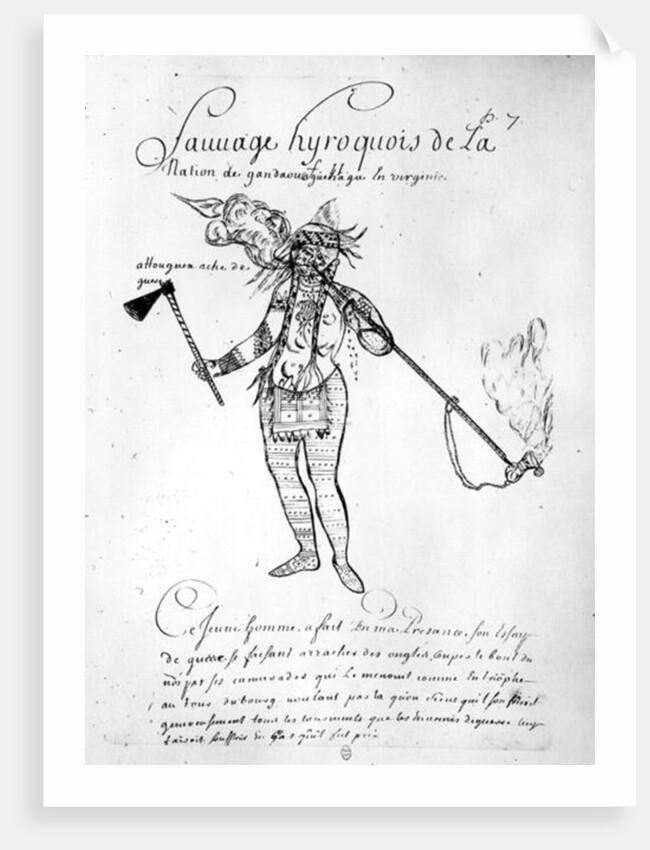 p. 7
Sauuage hyroquois de La
Nation de gandaouaguehaga En virginie.
attouguen ache de
guerre
Ce Jeune homme a fait En ma Presance son Essay
de guerre se faisant arracher des ongles, coupes le bout du
nés par ses camarades qui Le menoint comme En triōphe
au tour du bourg voulant par la qu'on Creut qu'il souffriroit
genereusement tous les tourments que les Ennemis de guerre luy
faisoit souffrir En Cas qu'il fut pris